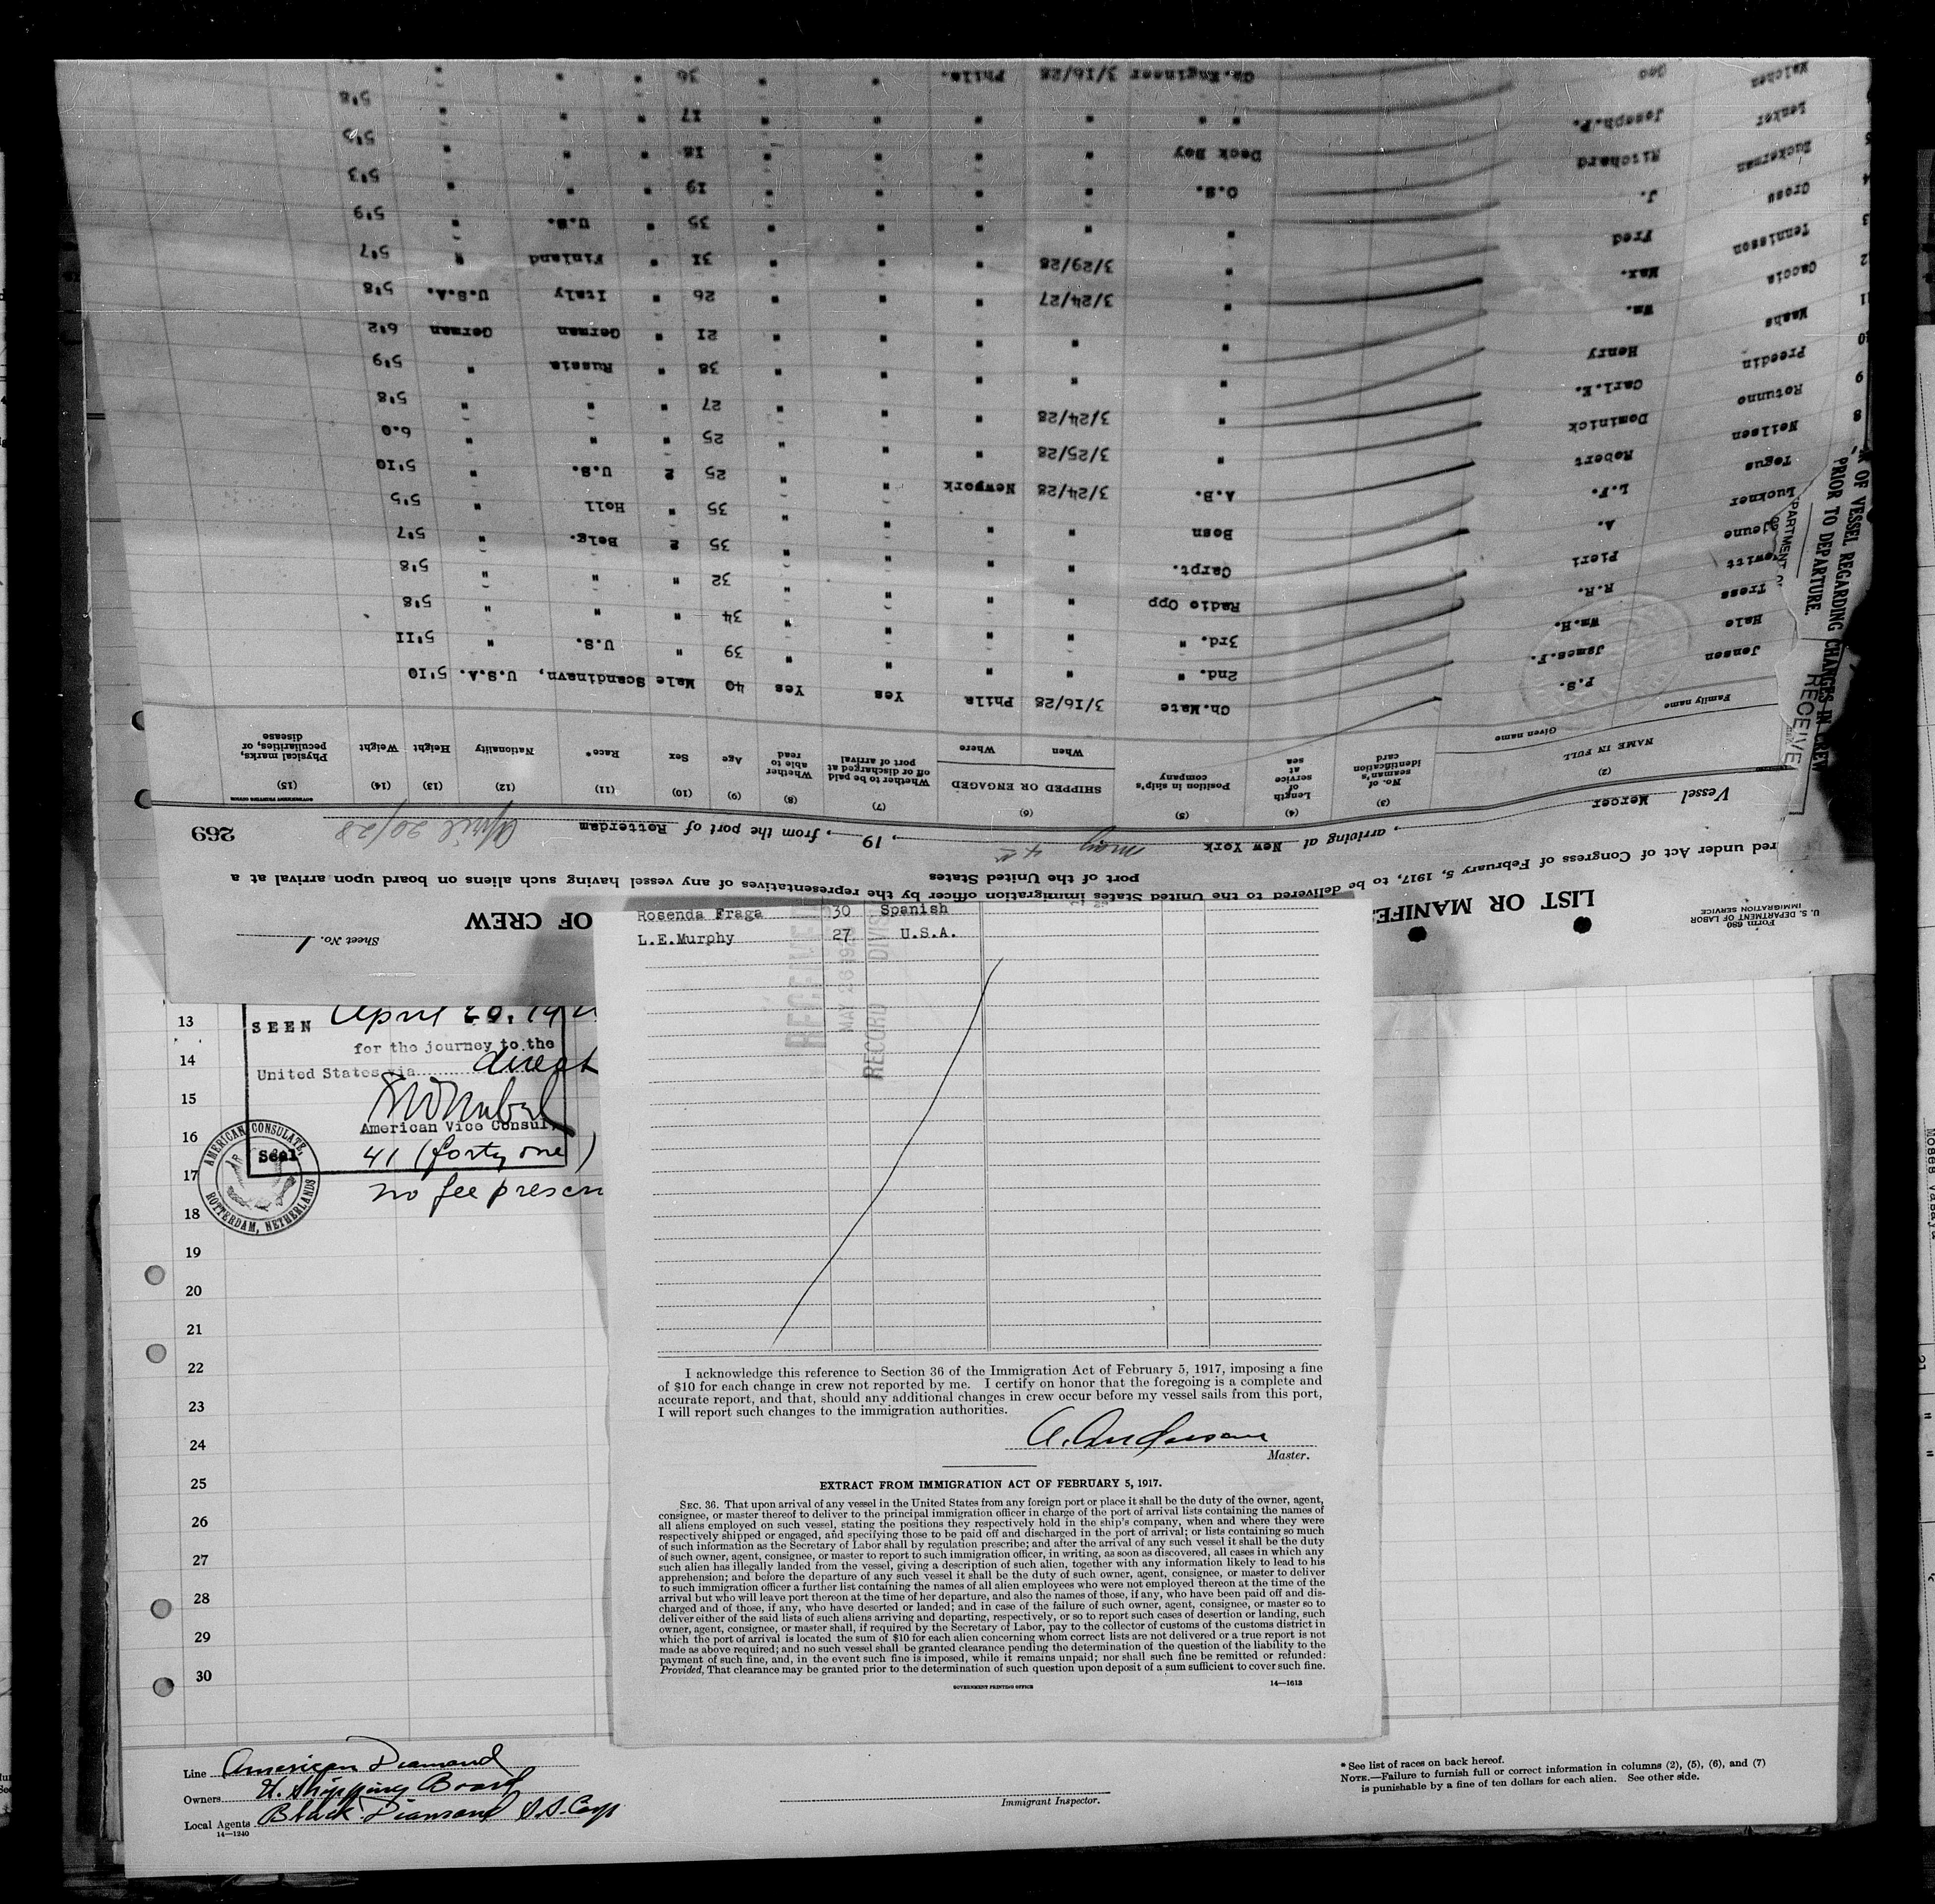 U. S. DEPARTMENT OF LABOR
IMMIGRATION SERVICE
Form 680
Sheet No. 1
LIST OR MANIFE OF CREW
red under Act of Congress of February 5, 1917, to be delivered to the United States immigration officer by the representatives of any vessel having such aliens on board upon arrival at a
port of the United States
Vessel Mercer, arriving at New York May 4th, 19, from the port of Rotterdam April 20/28 269
GOVERNMENT PRINTING OFFICE
(2) (3) (4) (5) (6) (7) (8) (9) (10) (11) (12) (13) (14) (15)
NAME IN FULL
Family name Given name
No. of seaman's identification card
Length of service at sea
Position in ship's company
SHIPPED OR ENGAGED
When Where
Whether to be paid off or discharged at port of arrival
Whether able to read
Age Sex Race* Nationality Height Weight
Physical marks, peculiarities, or disease
Jensen P.S. Ch.Mate 3/16/28 Phila Yes Yes 40 Male Scandinavn, U.S.A. 5'10
Hale James.F. 2nd. " " " " " 39 " U.S. " 5'11
Tress Wm.H. 3rd. " " " " " 34 " " " 5'8
ewitt R.R. Radio Opp " " " " 32 " " " 5'8
jeune Pieri Carpt. " " " " 35 2 Belg. " 5'7
Luckner A. Bosn " " " " 35 " Holl " 5'5
Togus L.F. A.B. 3/24/28 Newyork " " 25 2 U.S. " 5'10
8 Neilsen Robert " 3/25/28 " " " 25 " " " 6.0
9 Rotunno Dominick " 3/24/28 " " " 27 " " " 5'8
10 Preedin Carl.E. " " " " " 38 " Russia " 5'9
11 Maahs Henry " " " " " 21 " German German 6'2
12 Caccia Wm. " 3/24/27 " " " 26 " Italy U.S.A. 5'8
13 Tennisson Max. " 3/29/28 " " " 31 " Finland " 5'7
14 Gross Fred " " " " " 35 " U.S. " 5'9
15 Zuckerman J. O.S. " " " " 19 " " " 5'3
Lenker Richard Deck Boy " " " " 18 " " " 5'5
Melchen Joseph.P. " " " " " " 17 " " " 5'8
Geo Ch.Engineer 3/16/28 Phila. " " 36 " " "
OF VESSEL REGARDING CHANGES IN CREW
PRIOR TO DEPARTURE.
RECEIVE
Rosenda Fraga 30 Spanish
L.E.Murphy 27 U.S.A.
RECEIVED
MAY 26 192
RECORD DIVIS
I acknowledge this reference to Section 36 of the Immigration Act of February 5, 1917, imposing a fine
of $10 for each change in crew not reported by me. I certify on honor that the foregoing is a complete and
accurate report, and that, should any additional changes in crew occur before my vessel sails from this port,
I will report such changes to the immigration authorities.
A. Anderson
Master.
EXTRACT FROM IMMIGRATION ACT OF FEBRUARY 5, 1917.
SEC. 36. That upon arrival of any vessel in the United States from any foreign port or place it shall be the duty of the owner, agent,
consignee, or master thereof to deliver to the principal immigration officer in charge of the port of arrival lists containing the names of
all aliens employed on such vessel, stating the positions they respectively hold in the ship's company, when and where they were
respectively shipped or engaged, and specifying those to be paid off and discharged in the port of arrival; or lists containing so much
of such information as the Secretary of Labor shall by regulation prescribe; and after the arrival of any such vessel it shall be the duty
of such owner, agent, consignee, or master to report to such immigration officer, in writing, as soon as discovered, all cases in which any
such alien has illegally landed from the vessel, giving a description of such alien, together with any information likely to lead to his
apprehension; and before the departure of any such vessel it shall be the duty of such owner, agent, consignee, or master to deliver
to such immigration officer a further list containing the names of all alien employees who were not employed thereon at the time of the
arrival but who will leave port thereon at the time of her departure, and also the names of those, if any, who have been paid off and dis-
charged and of those, if any, who have deserted or landed; and in case of the failure of such owner, agent, consignee, or master so to
deliver either of the said lists of such aliens arriving and departing, respectively, or so to report such cases of desertion or landing, such
owner, agent, consignee, or master shall, if required by the Secretary of Labor, pay to the collector of customs of the customs district in
which the port of arrival is located the sum of $10 for each alien concerning whom correct lists are not delivered or a true report is not
made as above required; and no such vessel shall be granted clearance pending the determination of the question of the liability to the
payment of such fine, and, in the event such fine is imposed, while it remains unpaid; nor shall such fine be remitted or refunded:
Provided, That clearance may be granted prior to the determination of such question upon deposit of a sum sufficient to cover such fine.
GOVERNMENT PRINTING OFFICE 14—1613
13
14
15
16
17
18
19
20
21
22
23
24
25
26
27
28
29
30
SEEN April 20, 19
for the journey to the
United States via direct
American Vice Consul
Seal
41 (forty one)
no fee prescri
AMERICAN CONSULATE,
ROTTERDAM, NETHERLANDS
Line American Diamond
Owners U. Shipping Board
Local Agents Black Diamond S.S. Corp
14—1240
Immigrant Inspector.
* See list of races on back hereof.
NOTE.—Failure to furnish full or correct information in columns (2), (5), (6), and (7)
is punishable by a fine of ten dollars for each alien. See other side.